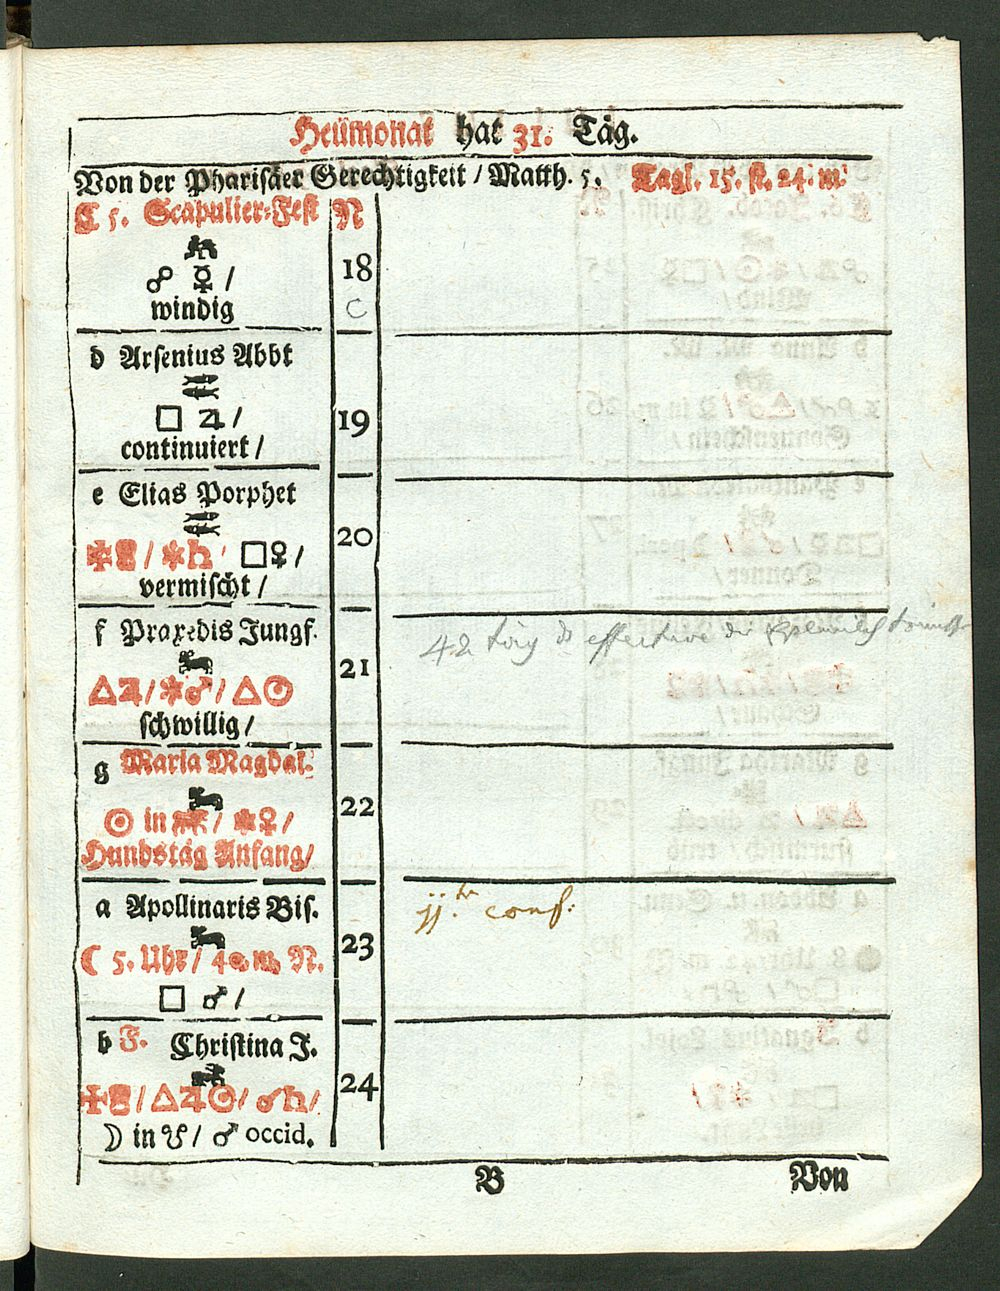 Heümonat hat 31. Täg.
Von der Pharisäer Gerechtigkeit / Matth. 5. Tagl. 15. st. 24. m.
C 5. Scapulier-Fest N
18
☍ ☿ /
windig
C
d Arsenius Abbt
□ ♃ /
19
continuiert /
e Elias Porphet
20
/ ✱ ♄ / □ ♀ /
vermischt /
f Praxedis Jungf.
21
△ ♃ / ✱ ♂ / △ ☉
schwillig /
g Maria Magdal.
22
☉ in ♌ / ✱ ♀ /
Hundstäg Anfang /
a Apollinaris Bis.
jj. conf:
23
☾ 5. Uhr / 40. m. N.
□ ♂ /
b F. Christina J.
24
/ △ ♃ ☉ / ☌ ♄ /
☽ in ☋ / ♂ occid.
B Von